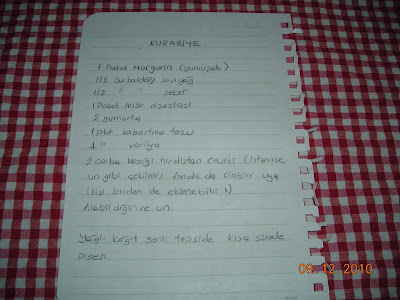 KURABİYE
1 Paket Margarin (yumuşak)
1/2 Su bardağı sıvıyağ
1/2 " " şeker
1 Paket mısır nişastası
2 yumurta
1 pkt kabartma tozu
1 " vanilya
2 çorba kaşığı hindistan cevizi (istenirse
un gibi çekilmiş fındık da olabilir veya
ikisi birden de eklenebilir :)
Alabildiğince un
Yağlı kağıt serili tepside kısa sürede
pişer.
09 12 2010